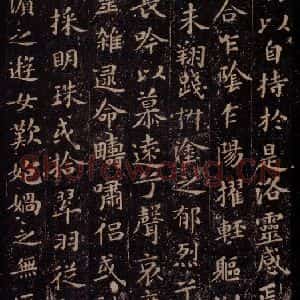 以自持於是洛靈感焉
合乍陰乍陽擢輕軀
未翔踐椒塗之郁烈兮
長吟以慕遠兮聲哀
靈雜遝命疇嘯侶或
採明珠或拾翠羽從
濱之遊女歎匏媧之無